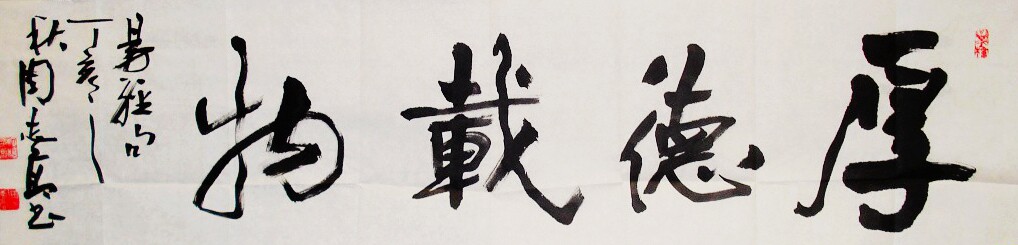 厚德載物
易經句
丁亥之
秋周志高书